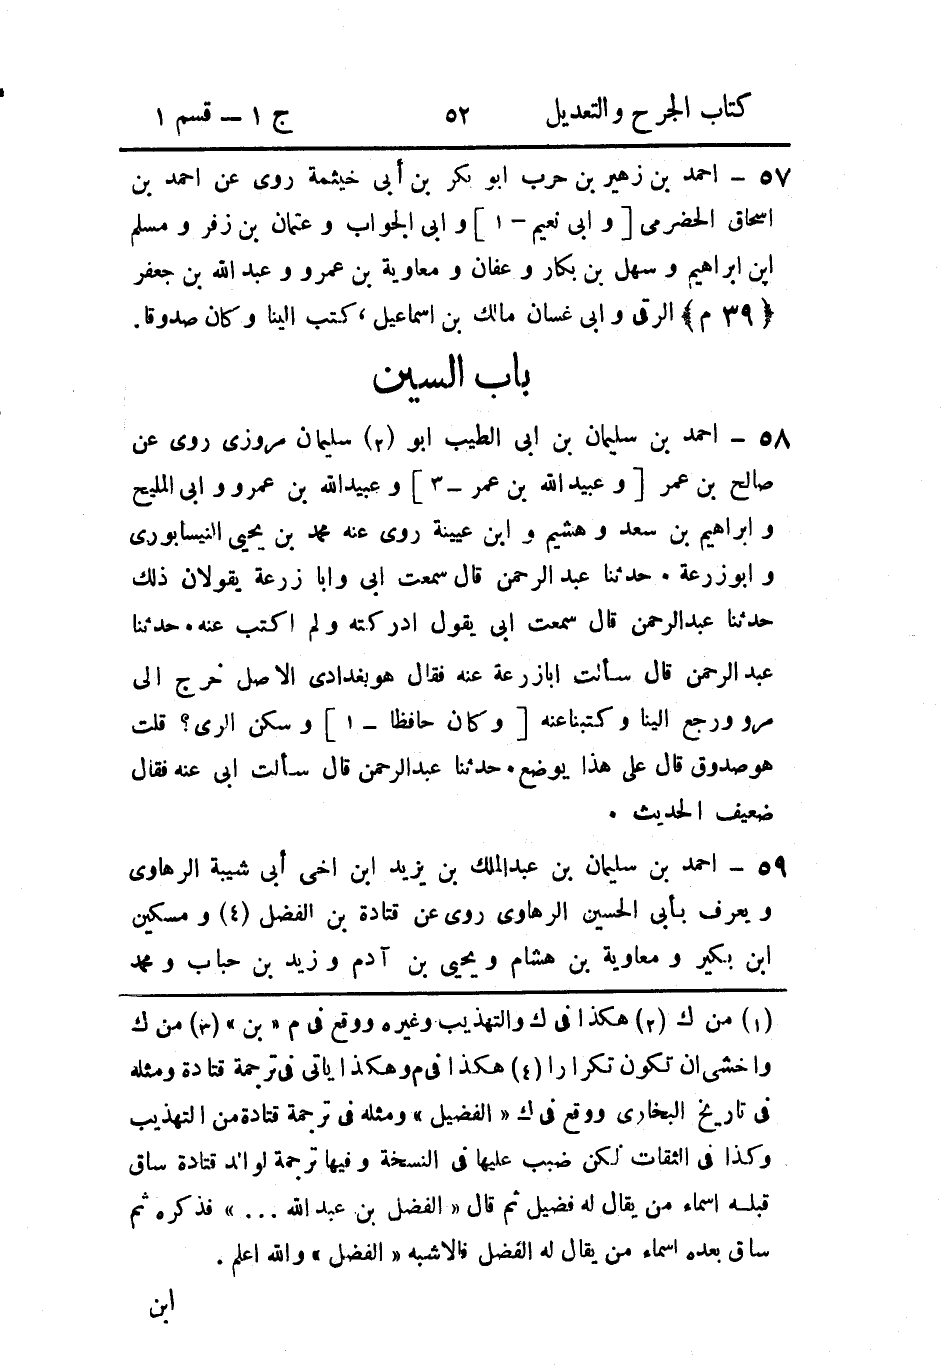 كتاب الجرح والتعديل ٥٢ ج ١ – قسم ١
٥٧ – احمد بن زهير بن حرب ابو بكر بن أبى خيثمة روى عن احمد بن
اسحاق الحضرمى [ و ابى نعيم – ١ ] و ابى الجواب و عثمان بن زفر و مسلم
ابن ابراهيم و سهل بن بكار و عفان و معاوية بن عمرو و عبد الله بن جعفر
﴿٣٩ م﴾ الرقى و ابى غسان مالك بن اسماعيل ، كتب الينا وكان صدوقا .
باب السين
٥٨ – احمد بن سليمان بن ابى الطيب ابو (٢) سليمان مروزى روى عن
صالح بن عمر [ و عبيد الله بن عمر – ٣ ] و عبيدالله بن عمرو و ابى المليح
و ابراهيم بن سعد و هشيم و ابن عيينة روى عنه محمد بن يحيى النيسابورى
و ابوزرعة . حدثنا عبد الرحمن قال سمعت ابى وابا زرعة يقولان ذلك
حدثنا عبدالرحمن قال سمعت ابى يقول ادركته ولم اكتب عنه . حدثنا
عبد الرحمن قال سألت ابازرعة عنه فقال هو بغدادى الاصل خرج الى
مرو ورجع الينا وكتبناعنه [ وكان حافظا – ١ ] و سكن الرى؟ قلت
هوصدوق قال على هذا يوضع . حدثنا عبدالرحمن قال سألت ابى عنه فقال
ضعيف الحديث .
٥٩ – احمد بن سليمان بن عبدالملك بن يزيد ابن اخى أبى شيبة الرهاوى
و يعرف بأبى الحسين الرهاوى روى عن قتادة بن الفضل (٤) و مسكين
ابن بكير و معاوية بن هشام و يحيى بن آدم و زيد بن حباب و محمد
(١) من ك (٢) هكذا فى ك والتهذيب وغيره ووقع فى م « بن » (٣) من ك
واخشى ان تكون تكرارا (٤) هكذا فى م وهكذا ياتى فى ترجمة قتادة ومثله
فى تاريخ البخارى ووقع فى ك « الفضيل » ومثله فى ترجمة قتادة من التهذيب
وكذا فى الثقات لكن ضبب عليها فى النسخة وفيها ترجمة لوالد قتادة ساق
قبله اسماء من يقال له فضيل ثم قال « الفضل بن عبد الله ... » فذكره ثم
ساق بعده اسماء من يقال له الفضل فالاشبه « الفضل » والله اعلم .
ابن